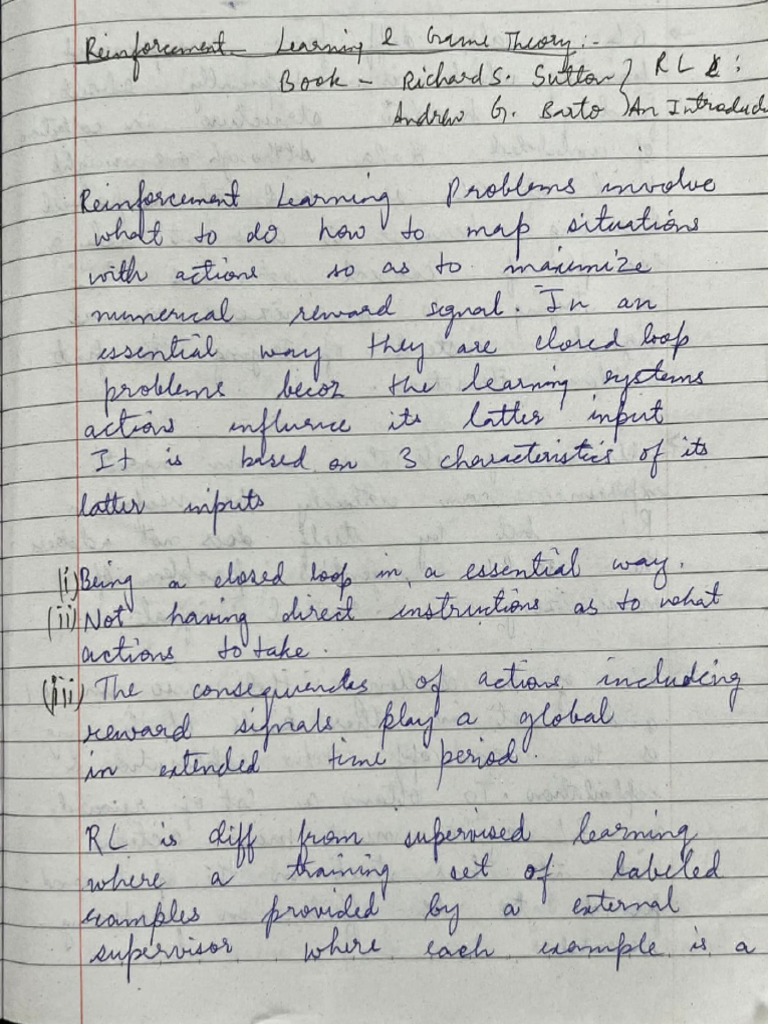 Reinforcement Learning & Game Theory:-
Book - Richard S. Sutton } RL :
Andrew G. Barto } An Introduc
Reinforcement Learning Problems involve
what to do how to map situations
with actions so as to maximize
numerical reward signal. In an
essential way they are closed loop
problems becoz the learning systems
actions influence its latter input
It is based on 3 characteristics of its
latter inputs
(i) Being a closed loop in a essential way.
(ii) Not having direct instructions as to what
actions to take.
(iii) The consequences of actions, including
reward signals play a global
in extended time period.
RL is diff from supervised learning
where a training set of labeled
examples provided by a external
supervisor where each example is a